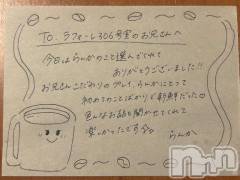 TO. ラフォーレ306号室のお兄さんへ
今日はらんかのこと選んでくれて
ありがとうございました!!
お兄さんこだわりのプレイ、らんかにとって
初めてのことばかりで新鮮だった
色んなお話も聞かせてくれて
楽しかったです
らんか